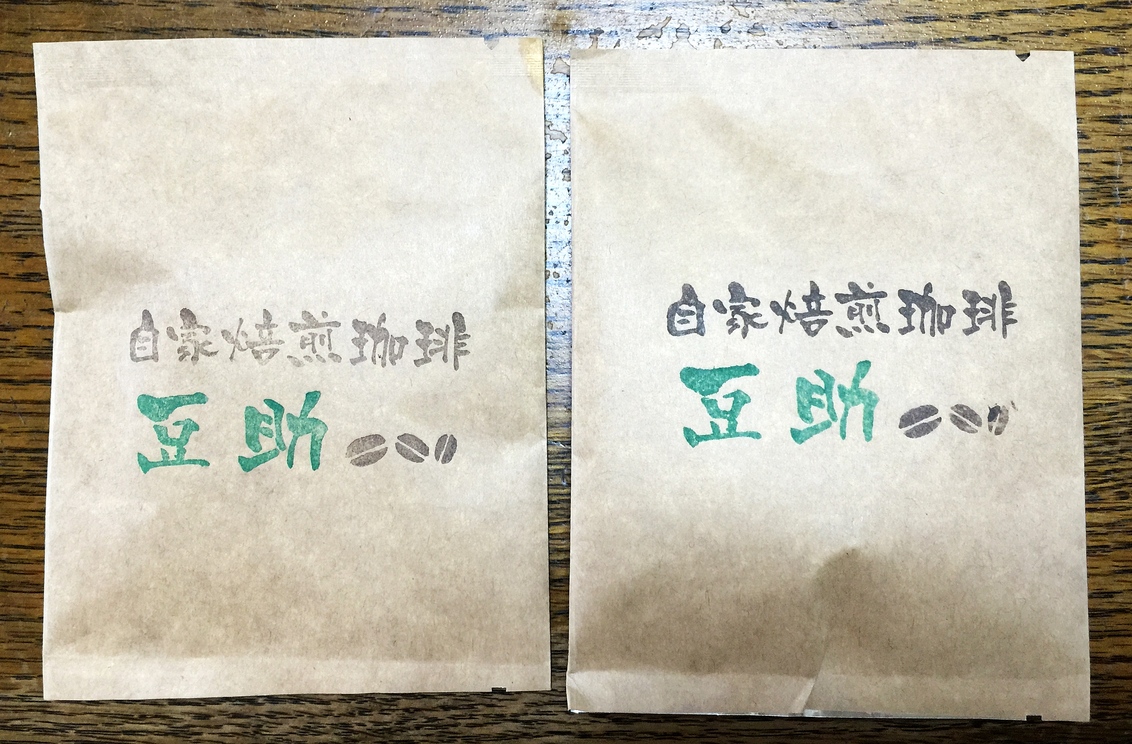 自家焙煎珈琲
豆助
自家焙煎珈琲
豆助